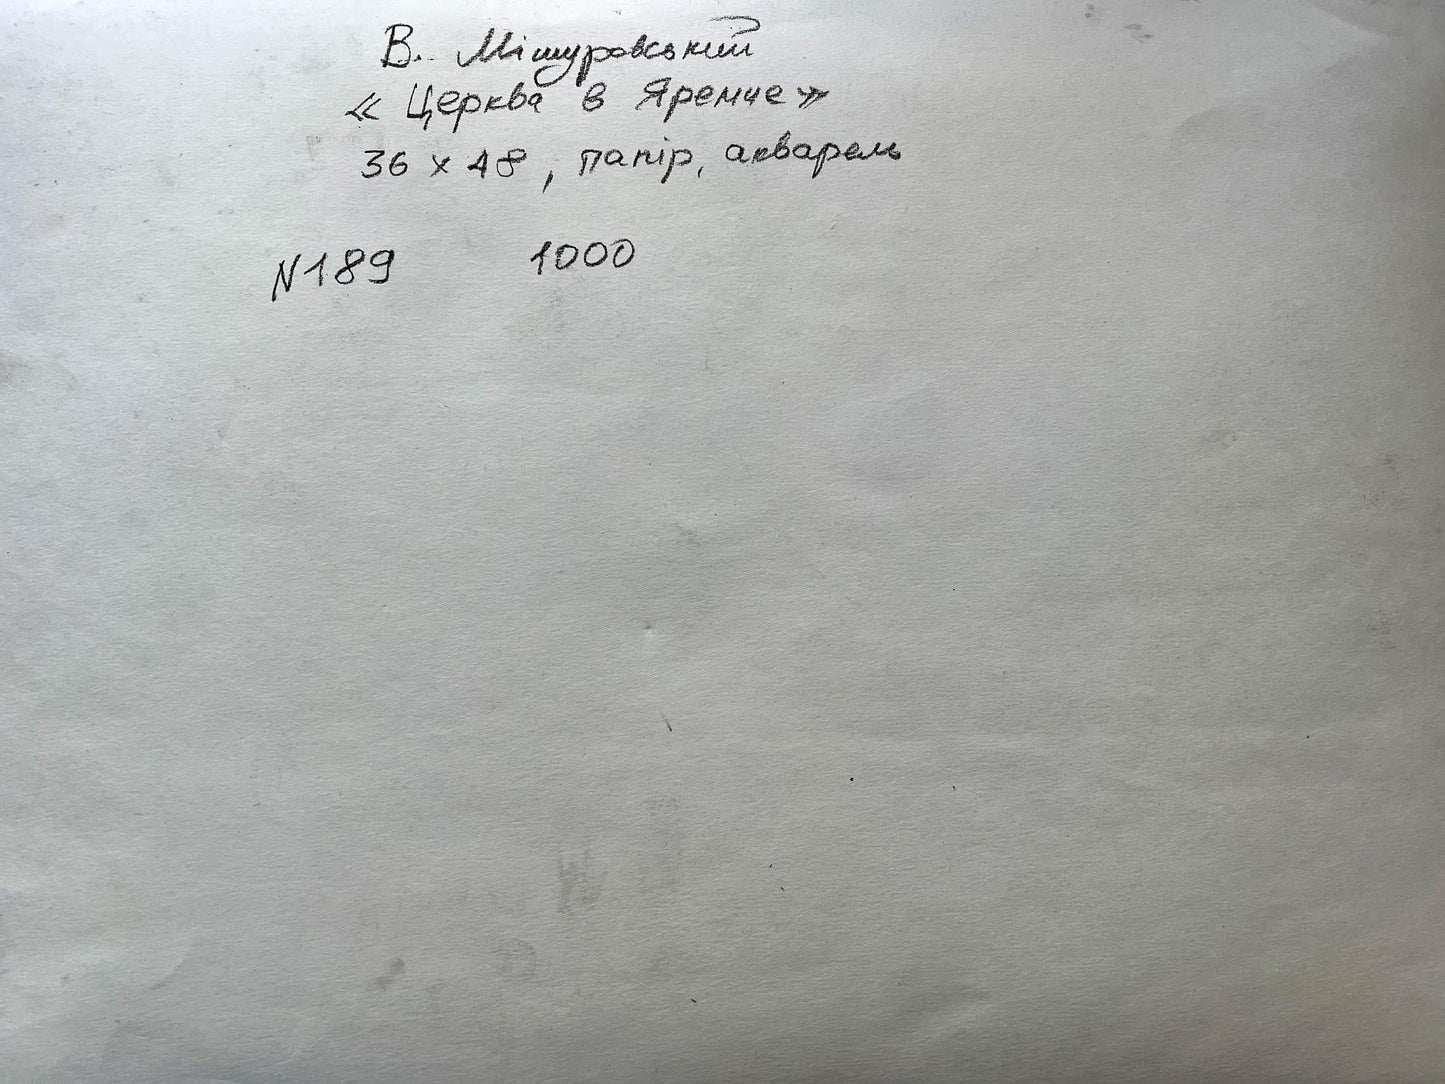 В. Мішуровський
« Церква в Яремче»
36 х 48, папір, акварель
N189 1000